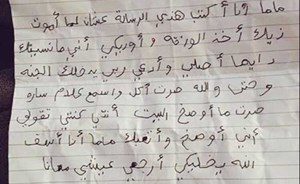 ماما أنا أكتب هذي الرسالة عشان لما أموت
زيك أخذ الورقه و أوريكي أني ما نسيتك
دايما أصلي و أدعي ربي يدخلك الجنه
وحتى والله صرت أكل و اسمع كلام ساره
صرت ما أوصخ البيت أنتي كنتي تقولي
أني أوصخ و أتعبك ماما أنا أسف
الله يخليكي أرجعي عيشي معانا